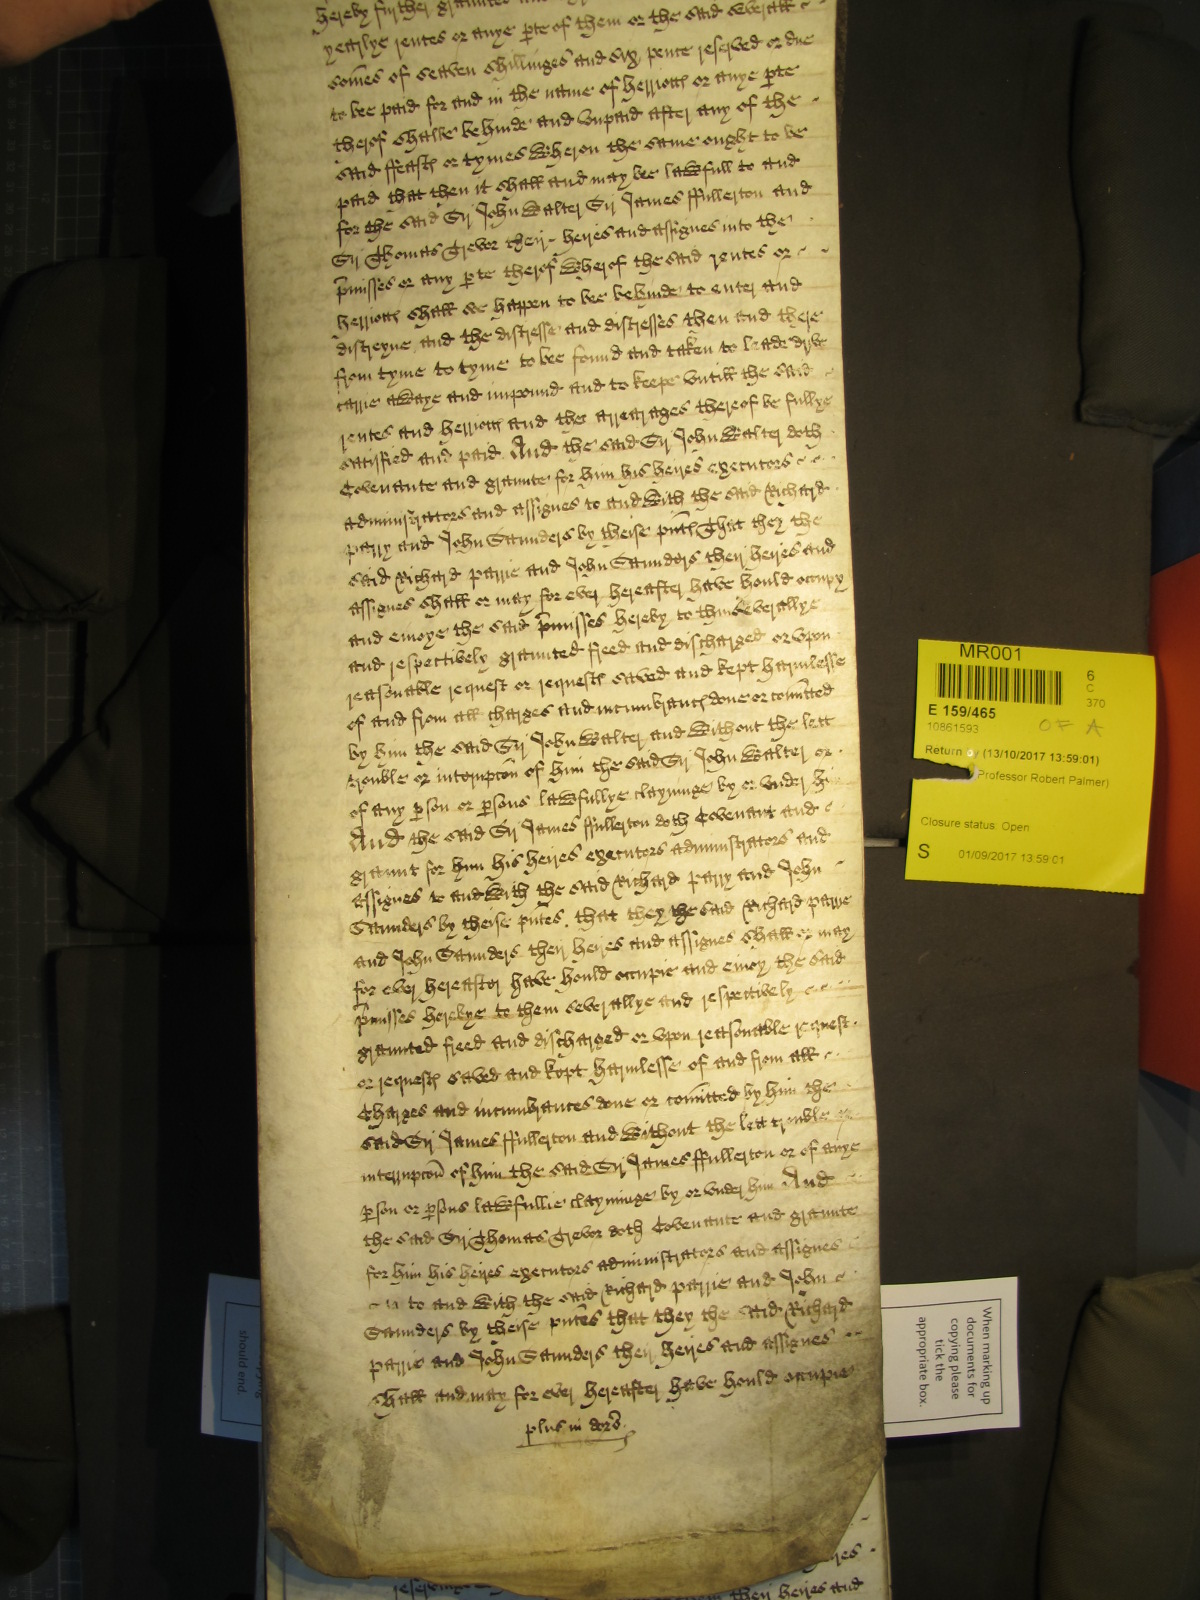 hereby further graunted
yearlye rentes or anye pte of them or the said severall
somes of seaven shillinges and six pence reserved or due
to bee paid for and in the name of herriott or anye pte
therof shalbe behinde and vnpaid after any of the
said ffeastes or tymes wheron the same ought to be
paid that then it shall and may bee lawfull to and
for the said Sir John Walter Sir James ffullerton and
Sir Thomas Trevor their heires and assignes into the
pmisses or any pte therof wherof the said rentes or
herriotts shall soe happen to bee behinde to enter and
distreyne and the distresse and distresses then and there
from tyme to tyme to bee found and taken to leade dryve
carrie awaye and impound and to keepe vntill the said
rentes and herriott and the arrerages thereof be fullye
satisfied and paid And the said Sir John Walter doth
Covenante and graunte for him his heires executors
administrators and assignes to and with the said Richard
parry and John Saunders by theise pntes That they the
said Richard parrie and John Saunders their heires and
assignes shall or may for ever hereafter have hould occupy
and enioye the said pmisses hereby to them severallye
and respectively graunted freed and discharged or vpon
reasonable request or requests saved and kept harmlesse
of and from all charges and incumbrances done or comitted
by him the said Sir John Walter and without the lett
trouble or interrupcon of him the said Sir John Walter or
of any pson or psons lawfullye clayminge by or vnder him
And the said Sir James ffullerton doth Covenant and
graunt for him his heires executors administrators and
assignes to and with the said Richard parry and John
Saunders by theise pntes, that they the said Richard parrie
and John Saunders their heires and assignes shall or may
for ever hereafter have hould occupie and enioy the said
pmisses herebye to them severallye and respectively
graunted freed and discharged or vpon reasonable request
or requests saved and kept harmlesse of and from all
Charges and incumbrances done or comitted by him the
said Sir James ffullerton and without the lett trouble or
interrupcon of him the said Sir James ffullerton or of anye
pson or psons lawfullie clayminge by or vnder him And
the said Sir Thomas Trevor doth Covenante and graunte
for him his heires executors administrators and assignes
to and with the said Richard parrie and John
Saunders by theise pntes that they the said Richard
parrie and John Saunders their heires and assignes
shall and may for ever hereafter have hould occupie
plus in dorso
their heires and
MR001
6
C
370
E 159/465
10861593
OF A
Return by (13/10/2017 13:59:01)
Professor Robert Palmer)
Closure status: Open
S 01/09/2017 13:59:01
When marking up
documents for
copying please
tick the
appropriate box.
should end.